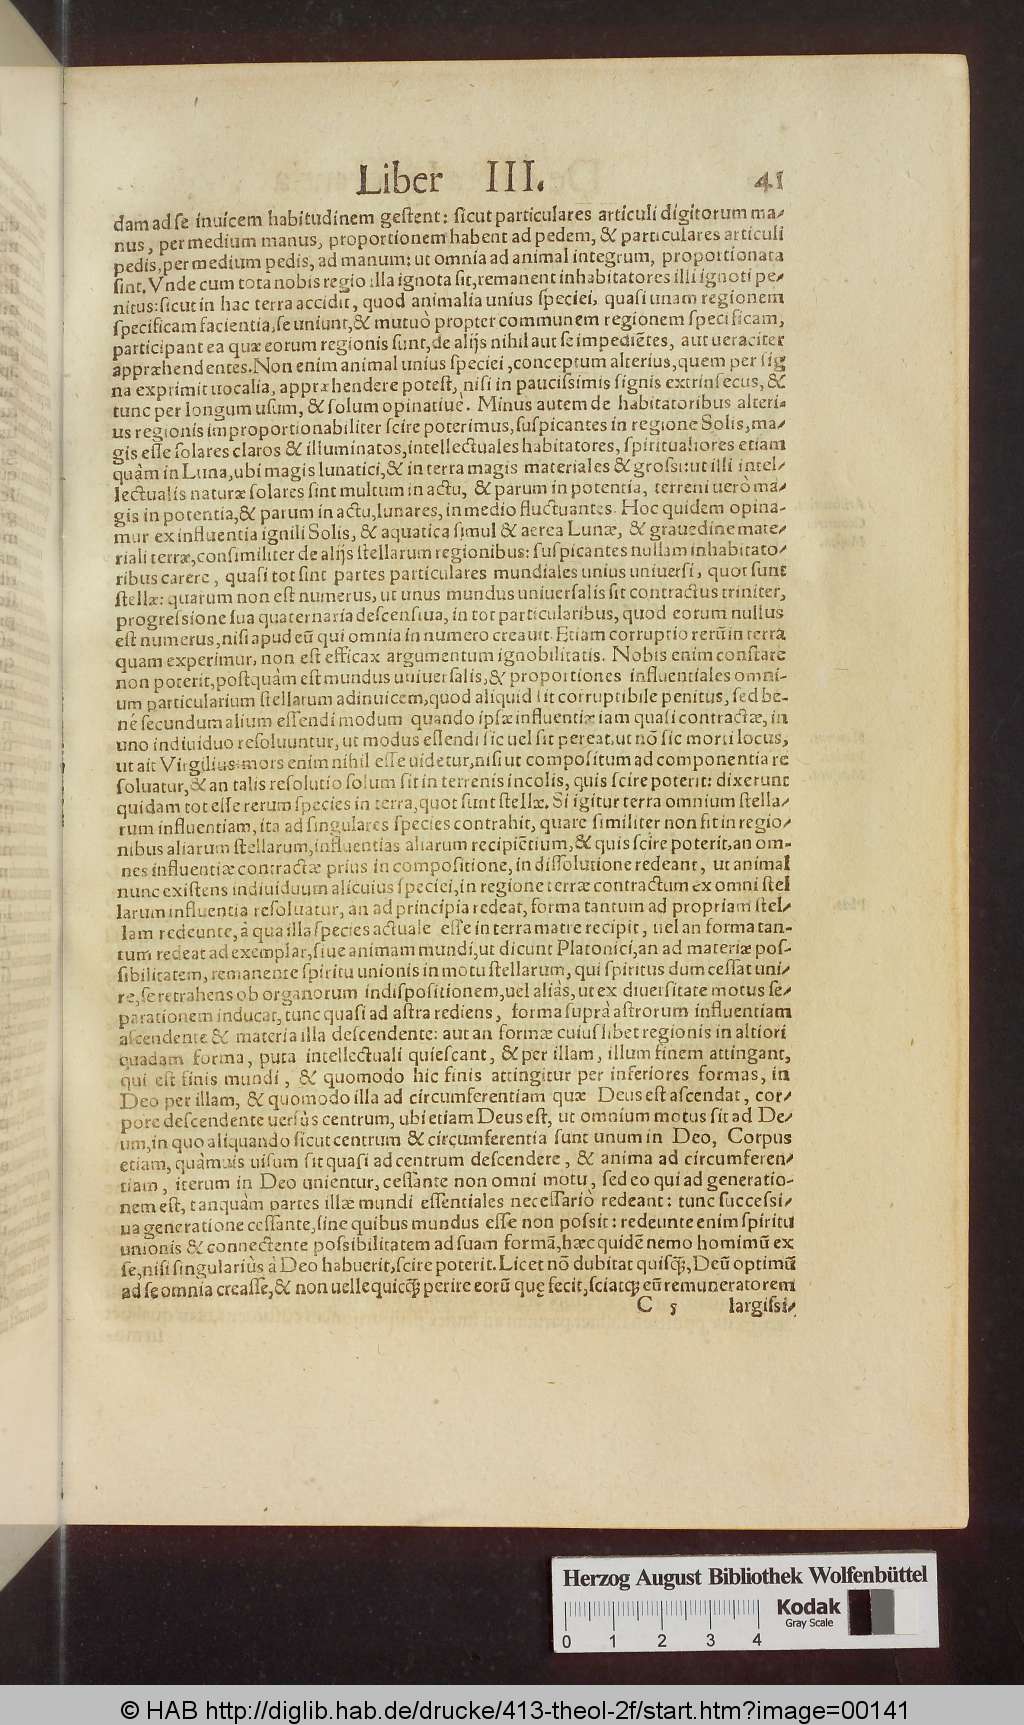 Liber III. 41
dam ad se inuicem habitudinem gestent: sicut particulares articuli digitorum ma-
nus, per medium manus, proportionem habent ad pedem, & particulares articuli
pedis, per medium pedis, ad manum: ut omnia ad animal integrum, proportionata
sint. Vnde cum tota nobis regio illa ignota sit, remanent inhabitatores illi ignoti pe-
nitus: sicut in hac terra accidit, quod animalia unius speciei, quasi unam regionem
specificam facientia, se uniunt, & mutuò propter communem regionem specificam,
participant ea quæ eorum regionis sunt, de alijs nihil aut se impediẽtes, aut ueraciter
appræhendentes. Non enim animal unius speciei, conceptum alterius, quem per sig
na exprimit uocalia, appræhendere potest, nisi in paucissimis signis extrinsecus, &
tunc per longum usum, & solum opinatiuè. Minus autem de habitatoribus alteri-
us regionis improportionabiliter scire poterimus, suspicantes in regione Solis, ma-
gis esse solares claros & illuminatos, intellectuales habitatores, spiritualiores etiam
quàm in Luna, ubi magis lunatici, & in terra magis materiales & grossi: ut illi intel-
lectualis naturæ solares sint multum in actu, & parum in potentia, terreni uerò ma-
gis in potentia, & parum in actu, lunares, in medio fluctuantes. Hoc quidem opina-
mur ex influentia ignili Solis, & aquatica simul & aerea Lunæ, & grauedine mate-
riali terræ, consimiliter de alijs stellarum regionibus: suspicantes nullam inhabitato-
ribus carere, quasi tot sint partes particulares mundiales unius uniuersi, quot sunt
stellæ: quarum non est numerus, ut unus mundus uniuersalis sit contractus triniter,
progressione sua quaternaria descensiua, in tot particularibus, quod eorum nullus
est numerus, nisi apud eũ qui omnia in numero creauit. Etiam corruptio rerũ in terra
quam experimur, non est efficax argumentum ignobilitatis. Nobis enim constare
non poterit, postquàm est mundus uniuersalis, & proportiones influentiales omni-
um particularium stellarum adinuicem, quod aliquid sit corruptibile penitus, sed be-
né secundum alium essendi modum quando ipsæ influentiæ iam quasi contractæ, in
uno indiuiduo resoluuntur, ut modus essendi sic uel sit pereat, ut nõ sic morti locus,
ut ait Virgilius: mors enim nihil esse uidetur, nisi ut compositum ad componentia re
soluatur, & an talis resolutio solum sit in terrenis incolis, quis scire poterit: dixerunt
quidam tot esse rerum species in terra, quot sunt stellæ. Si igitur terra omnium stella-
rum influentiam, ita ad singulares species contrahit, quare similiter non fit in regio-
nibus aliarum stellarum, influentias aliarum recipiẽtium, & quis scire poterit, an om-
nes influentiæ contractæ prius in compositione, in dissolutione redeant, ut animal
nunc existens indiuiduum alicuius speciei, in regione terræ contractum ex omni stel
larum influentia resoluatur, an ad principia redeat, forma tantum ad propriam stel-
lam redeunte, à qua illa species actuale esse in terra matre recipit, uel an forma tan-
tum redeat ad exemplar, siue animam mundi, ut dicunt Platonici, an ad materiæ pos-
sibilitatem, remanente spiritu unionis in motu stellarum, qui spiritus dum cessat uni-
re, se retrahens ob organorum indispositionem, uel aliàs, ut ex diuersitate motus se-
parationem inducat, tunc quasi ad astra rediens, forma suprà astrorum influentiam
ascendente & materia illa descendente: aut an formæ cuiuslibet regionis in altiori
quadam forma, puta intellectuali quiescant, & per illam, illum finem attingant,
qui est finis mundi, & quomodo hic finis attingitur per inferiores formas, in
Deo per illam, & quomodo illa ad circumferentiam quæ Deus est ascendat, cor-
pore descendente uersùs centrum, ubi etiam Deus est, ut omnium motus sit ad De-
um, in quo aliquando sicut centrum & circumferentia sunt unum in Deo, Corpus
etiam, quàmuis uisum sit quasi ad centrum descendere, & anima ad circumferen-
tiam, iterum in Deo unientur, cessante non omni motu, sed eo qui ad generatio-
nem est, tanquàm partes illæ mundi essentiales necessariò redeant: tunc successi-
ua generatione cessante, sine quibus mundus esse non possit: redeunte enim spiritu
unionis & connectente possibilitatem ad suam formã, hæc quidẽ nemo hominũ ex
se, nisi singulariùs à Deo habuerit, scire poterit. Licet nõ dubitat quisq̃, Deũ optimũ
ad se omnia creasse, & non uelle quicq̃ perire eorũ quę fecit, sciatq; eũ remuneratorem
C 5 largissi-
Herzog August Bibliothek Wolfenbüttel
Kodak
Gray Scale
0 1 2 3 4
© HAB http://diglib.hab.de/drucke/413-theol-2f/start.htm?image=00141